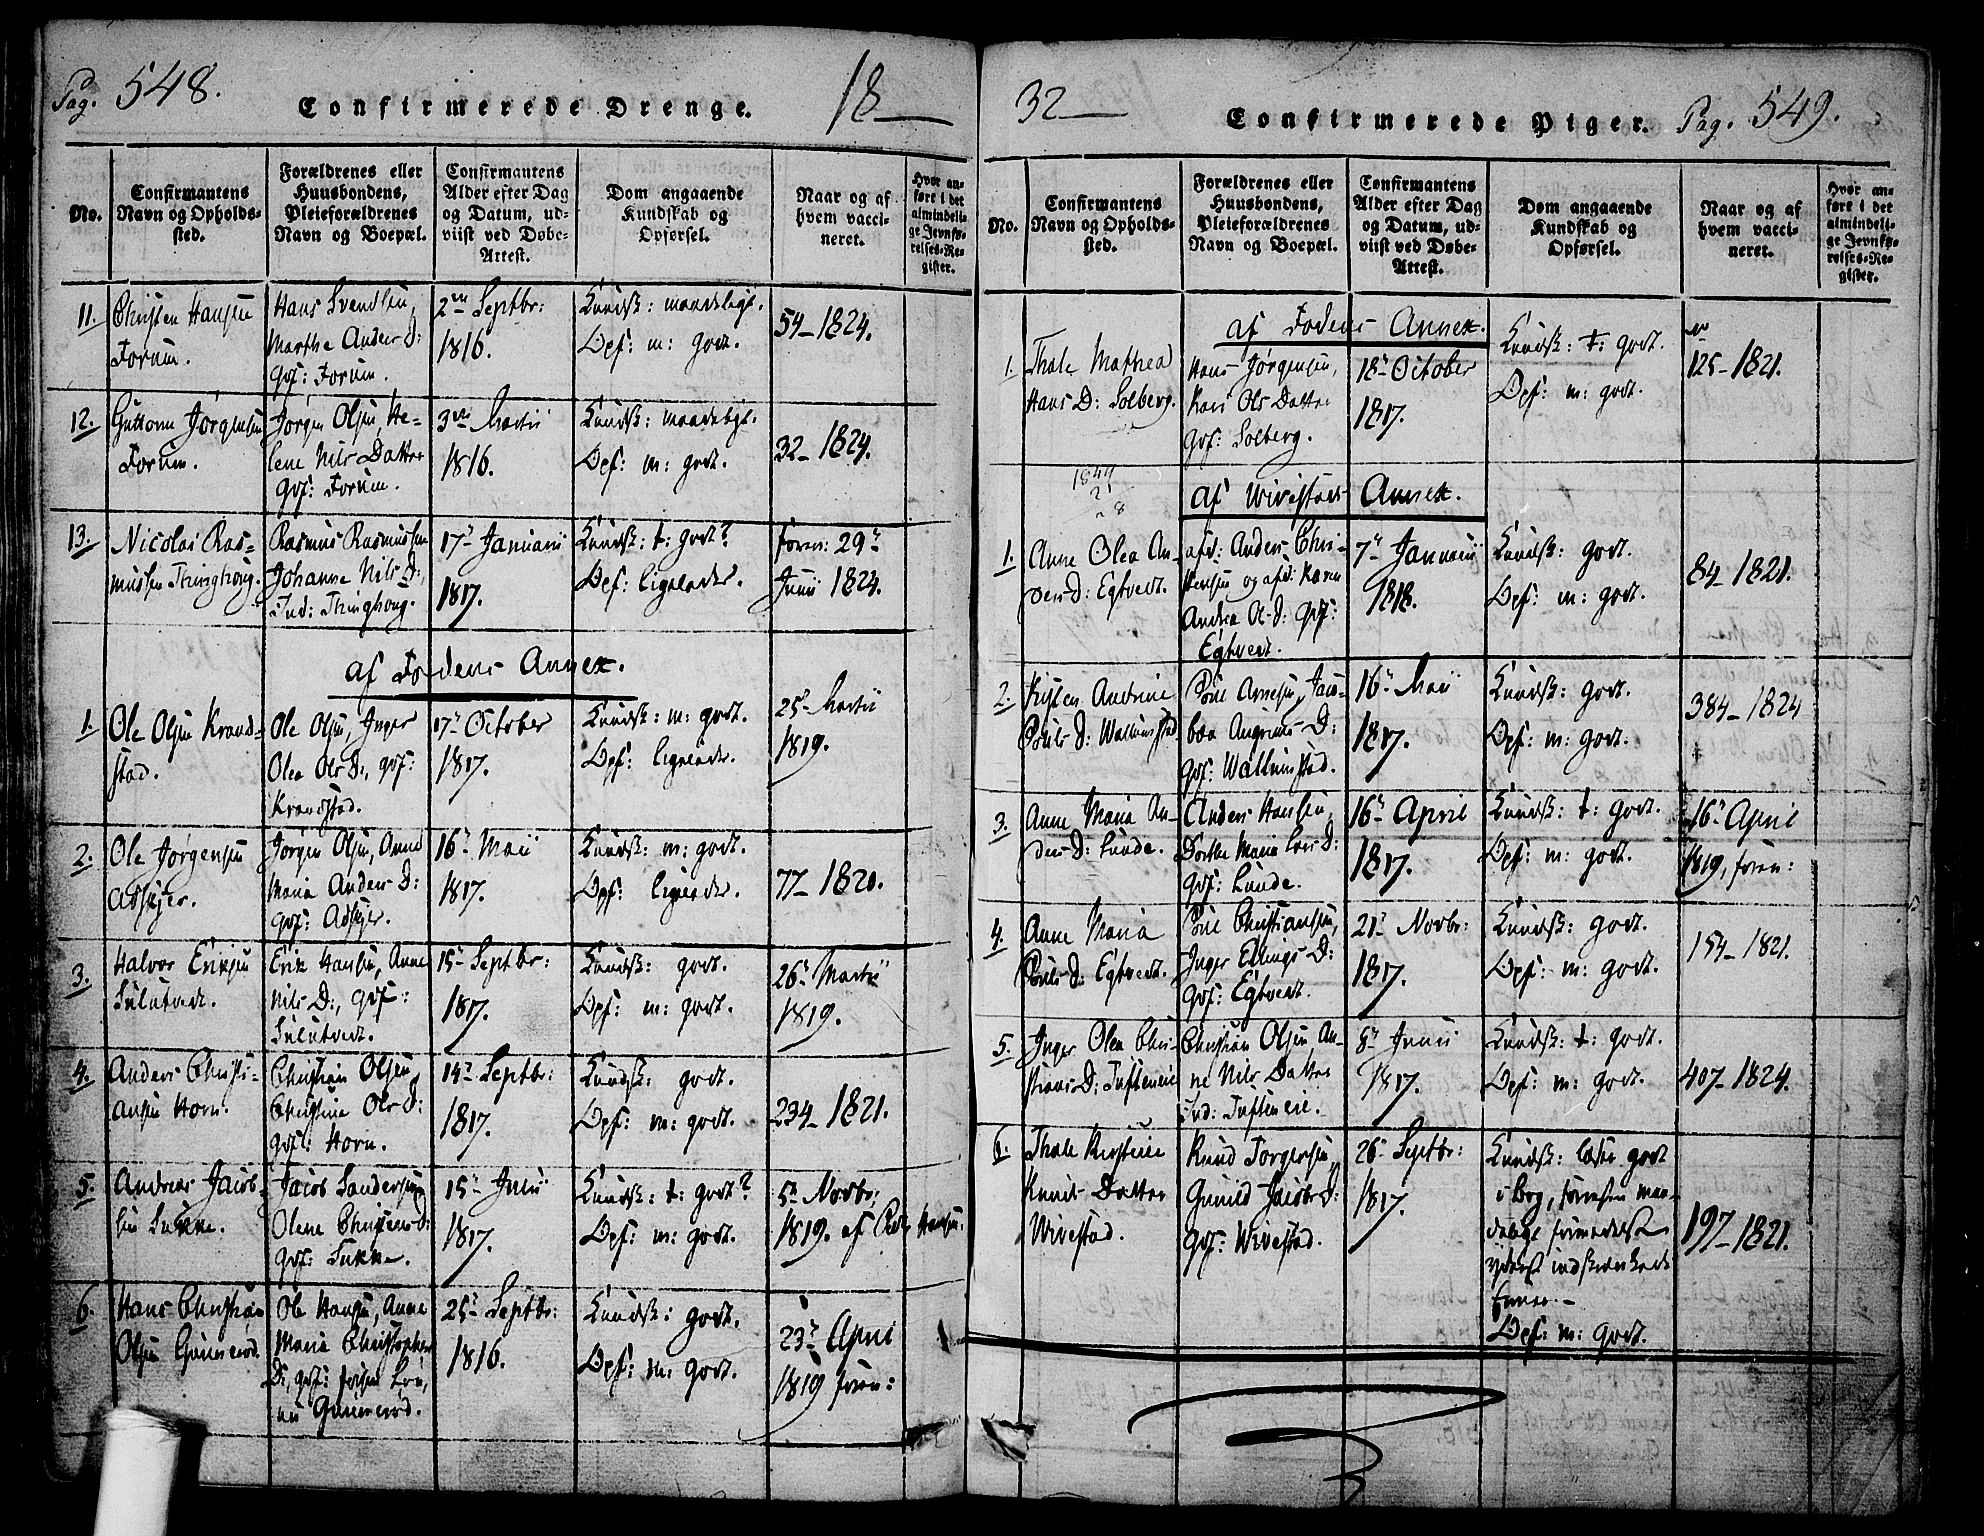 Pag. 548.
Confirmerede Drenge.
18
No.
Confirmantens Navn og Opholds-sted.
Forældrenes eller Huusbondens, Pleieforældrenes Navn og Boepæl.
Confirmantens Alder efter Dag og Datum, ud-viist ved Døbe-Attest.
Dom angaaende Kundskab og Opførsel.
Naar og af hvem vacci-neret.
Hvor an-ført i det almindeli-ge Jevnfø-relses-Re-gister.
11.
Christen Hansen
Forum.
Hans Svendsen,
Marthe Anders D:
Grf: Forum.
2den Septbr:
1816.
Kundsk: maadeligt.
Opf: m: godt.
54- 1824.
12.
Guttorm Jørgensen
Forum.
Jørgen Olsen He-
lene Nils Datter
Grf: Forum.
3den Martii
1816.
Kundsk: maadeligt.
Opf: m: godt.
32- 1824.
13.
Nicolai Ras-
mussen Thinghoug.
Rasmus Rasmussen
Johanne Nils D:,
Ind: Thinghoug.
17- Januarii
1817.
Kundsk: t: godt?
Opf: ligeledes.
foren: 29-
Junii 1824.
af Fodens Annex.
1.
Ole Olsen Krand-
stad.
Ole Olsen, Inger
Olea Ols D:, grf:
Krandstad.
17- October
1817.
Kundsk: m: godt.
Opf: ligeledes.
25- Martii
1819.
2.
Ole Jørgensen
Adskjer.
Jørgen Olsen, Anne
Maria Anders D:
grf: Adskjer.
16- Maii
1817.
Kundsk: m: godt.
Opf: ligeledes.
77- 1821.
3.
Halvor Eriksen
Erik Hansen, Anne
Nils D:, grf:
15- Septbr:
1817.
Kundsk: godt.
Opf: m: godt.
26- Martii
1819.
4.
Anders Christi-
ansen Horn.
Christian Olsen,
Christine Ols D:
grf: Horn.
14- Septbr:
1817.
Kundsk: godt.
Opf: m: godt.
234- 1821.
5.
Andreas Jacob-
sen
Jacob Sandersen
Olene Christens D:
grf:
15- Junii
1817.
Kundsk: t: godt?
Opf: m: godt.
5- Novbr:
1819. af Hansen.
6.
Hans Christian
Olsen
Ole Hansen, Anne
Maria Christopher
D:, grf:
25- Septbr:
1816.
Kundsk: godt.
Opf: m: godt.
23- April
1819 foren:
32
Confirmerede Piger.
Pag. 549.
No.
Confirmantens Navn og Opholds-sted.
Forældrenes eller Huusbondens, Pleieforældrenes Navn og Boepæl.
Confirmantens Alder efter Dag og Datum, ud-viist ved Døbe-Attest.
Dom angaaende Kundskab og Opførsel.
Naar og af hvem vacci-neret.
Hvor an-ført i det almindeli-ge Jevnfø-relses-Re-gister.
af Fodens Annex.
1.
Thale Mathea
Hans D: Solberg.
Hans Jørgensen,
Kari Ols Datter
grf: Solberg.
18- October
1817.
Kundsk: t: godt.
Opf: m: godt.
125- 1821.
af Wivestads Annex.
1.
Anne Olea An-
ders D: Egtvedt.
afd: Anders Chri-
stensen og afd: Karen
Andrea A- D: grf:
Egtvedt.
7- Januarii
1818.
Kundsk: godt.
Opf: m: godt.
84- 1821.
2.
Kisten Andrine
Pouls D: Wallumstad
Poul Arnesen, Jaco-
bea D:
grf: Wallumstad.
16- Maii
1817.
Kundsk: godt.
Opf: m: godt.
384- 1824
3.
Anne Maria An-
ders D: Lunde.
Anders Hansen,
Dorthe Maria Lars D:
grf: Lunde.
16- April
1817.
Kundsk: t: godt.
Opf: m: godt.
16- April
1819, foren:
4.
Anne Maria
Pouls D: Egtvedt.
Poul Christiansen,
Inger Ellings D:
grf: Egtvedt.
21- Novbr:
1817.
Kundsk: godt.
Opf: m: godt.
154- 1821.
5.
Inger Olea Chri-
stians D: Tufteneie
Christian Olsen An-
ne Nils Datter
Ind: Tufteneie.
8- Junii
1817.
Kundsk: t: godt.
Opf: m: godt.
407- 1824.
6.
Thale Kirstine
Knuds Datter
Wivestad.
Knud Torgersen,
Gunild Jacobs D:
grf: Wivestad.
26- Septbr:
1817.
Kundsk: læser godt
i Bog, forresten maa-
deligt formedelst
yderst indskrænkede
Evner.-
Opf: m: godt.
197- 1821.